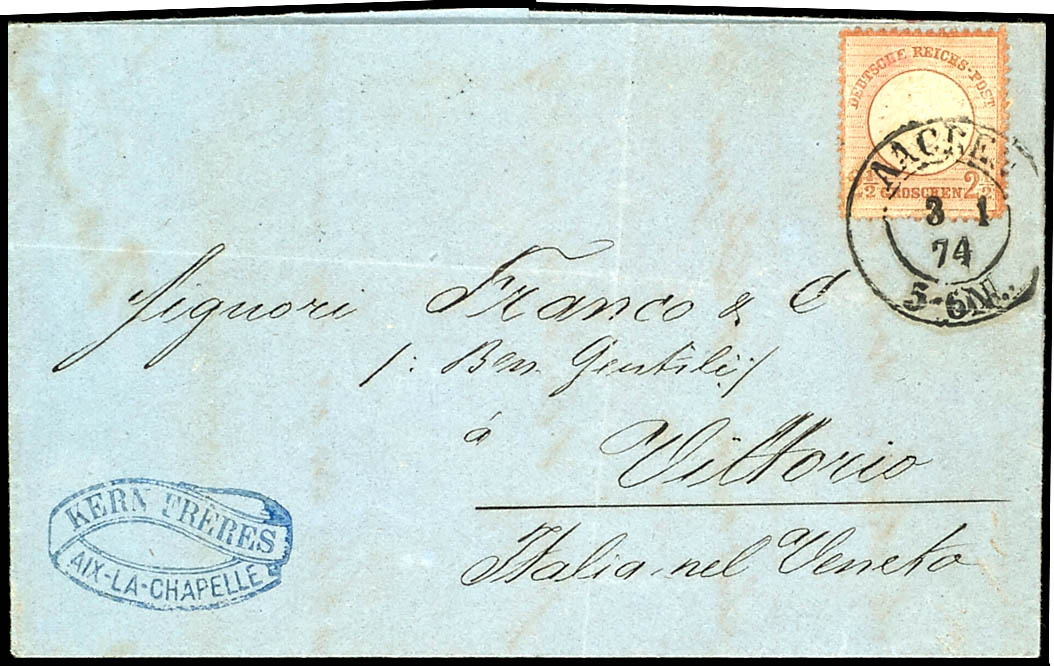 DEUTSCHE REICHS-POST
2½ GROSCHEN 2½
AACHEN
3 1
74
5-6N.
Signori Franco & C
/: Ben Gentili :/
à
Vittorio
Italia nel Veneto
KERN FRERES
AIX-LA-CHAPELLE